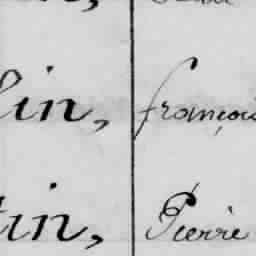 lin, françois
tin, Pierre